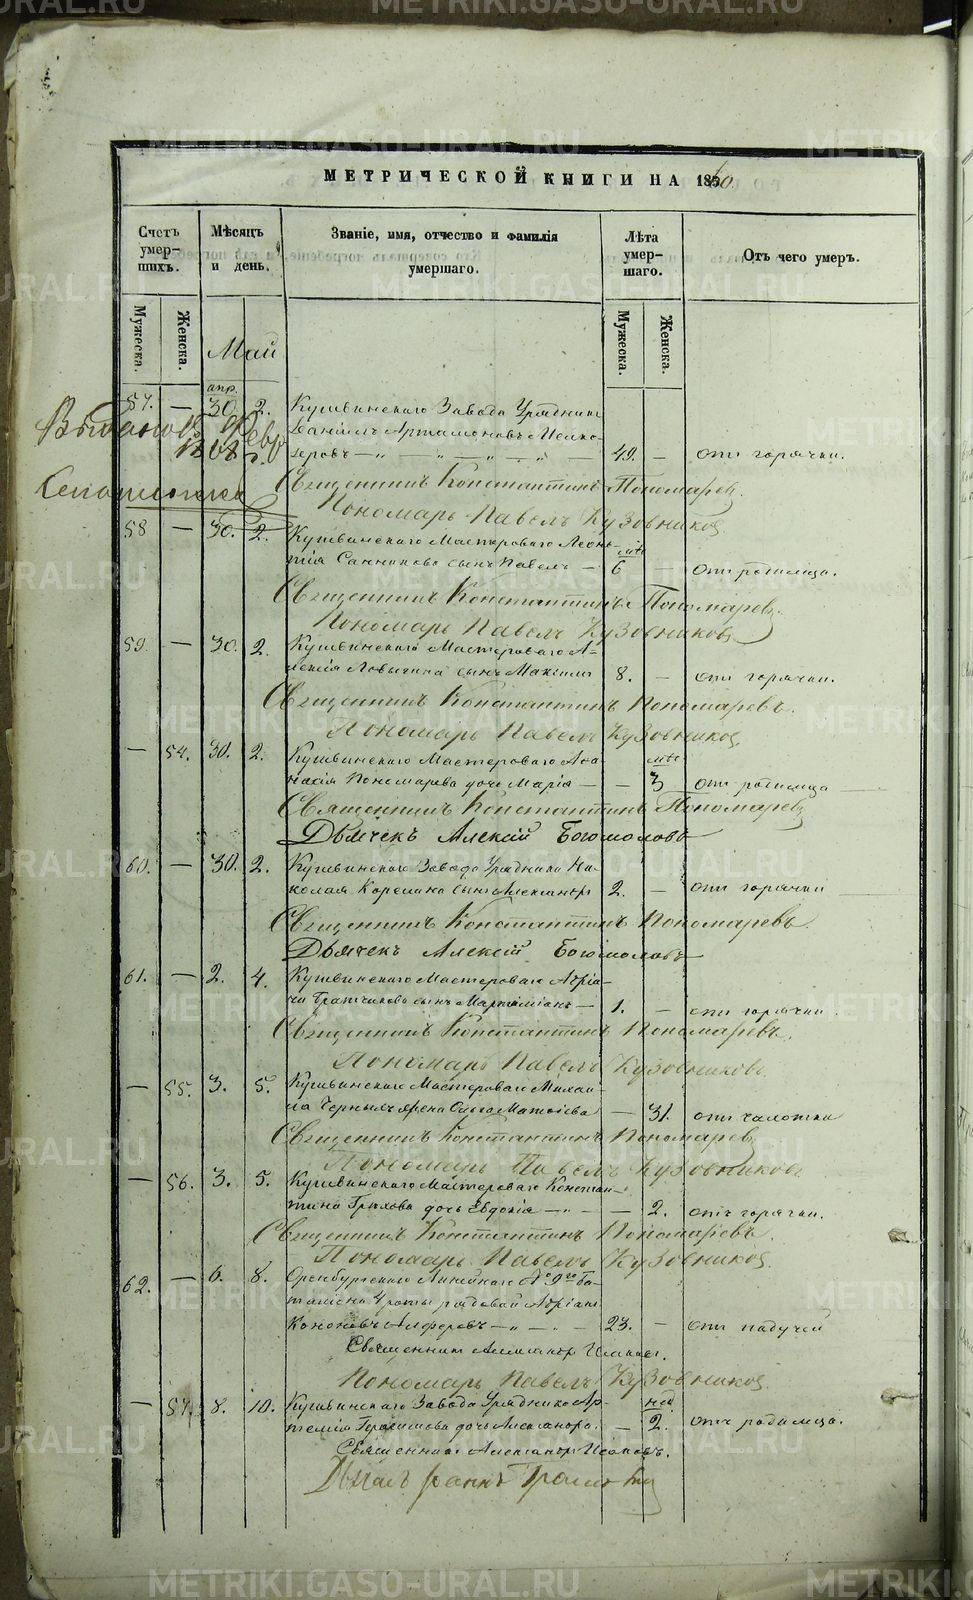 МЕТРИЧЕСКОЙ КНИГИ НА 1860.
Счетъ умер-шихъ.
Мѣсяцъ и день.
Званіе, имя, отчество и фамилія умершаго.
Лѣта умер-шаго.
Отъ чего умеръ.
Мужеска.
Женска.
Мужеска.
Женска.
Май
апр.
57. — 30. 2. Кушвинскаго Завода Урядникъ
Даніилъ Артамоновъ
49. — отъ горячки.
Священникъ Константинъ Пономаревъ
Пономарь Павелъ Кузовниковъ
58 — 30. 2. Кушвинскаго Мастероваго Леон-
тія Санникова сынъ Павелъ — 6 — отъ родимца.
Священникъ Константинъ Пономаревъ
Пономарь Павелъ Кузовниковъ
59. — 30. 2. Кушвинскаго Мастероваго А-
лексія сынъ Максимъ 8. — отъ горячки.
Священникъ Константинъ Пономаревъ.
Пономарь Павелъ Кузовниковъ
— 54. 30. 2. Кушвинскаго Мастероваго Афа-
насія Пономарева дочь Марія — — 3 отъ родимца
Священникъ Константинъ Пономаревъ
Дьячекъ Алексій Богомоловъ
60. — 30. 2. Кушвинскаго Завода Урядника Ни-
колая Корелина сынъ Александръ 2. — отъ горячки
Священникъ Константинъ Пономаревъ
Дьячекъ Алексій Богомоловъ
61. — 2. 4. Кушвинскаго Мастероваго Адріа-
на Братчикова сынъ — 1. — отъ горячки.
Священникъ Константинъ Пономаревъ.
Пономарь Павелъ Кузовниковъ
— 55. 3. 5. Кушвинскаго Мастероваго Михаи-
ла Черныхъ жена Ольга Матвіева — 31. отъ чахотки
Священникъ Константинъ Пономаревъ
Пономарь Павелъ Кузовниковъ
— 56. 3. 5. Кушвинскаго Мастероваго Констан-
тина Грѣхова дочь Евдокія — — 2. отъ горячки.
Священникъ Константинъ Пономаревъ.
Пономарь Павелъ Кузовниковъ
62. — 6. 8. Оренбургскаго Линейнаго № 9го Ба-
таліона 4 роты рядовой Адріанъ
Кононовъ Алферовъ — 23. — отъ падучей
Священникъ Александръ
Пономарь Павелъ Кузовниковъ
— 57. 8. 10. Кушвинскаго Завода Урядника Ар-
темія Герасимова дочь Александра. — 2. отъ родимца.
Священникъ Александръ
METRIKI.GASO-URAL.RU